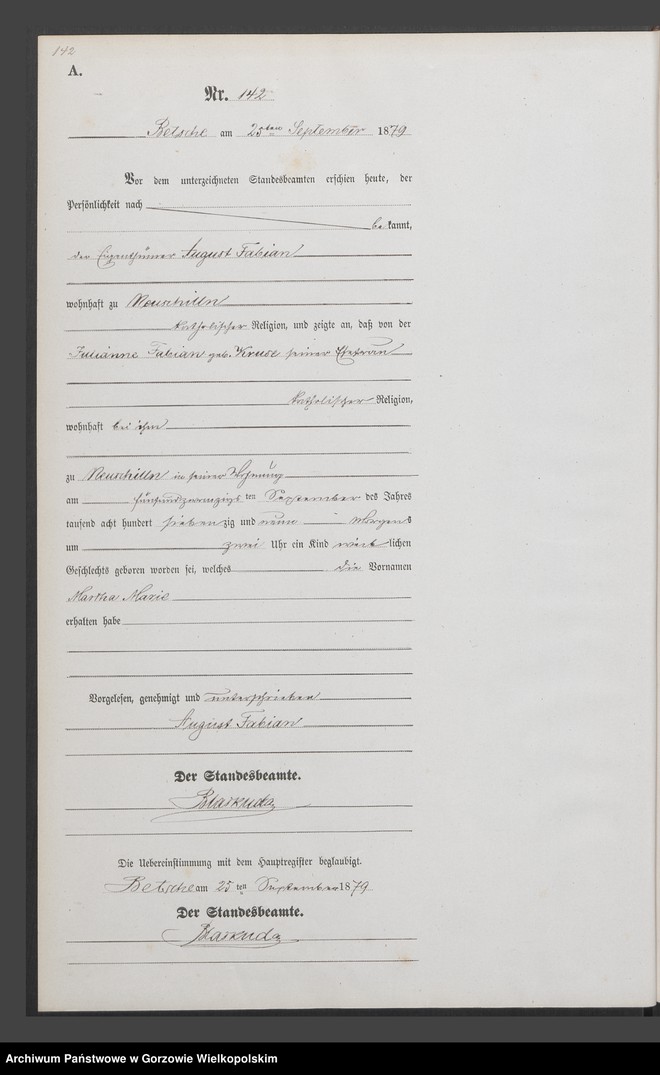 142
A.
Nr. 142
Betsche am 25ten September 1879
Vor dem unterzeichneten Standesbeamten erschien heute, der
Persönlichkeit nach
bekannt,
der Eigenthümer August Fabian
wohnhaft zu Neuschilln
katholischer Religion, und zeigte an, daß von der
Julianne Fabian geb. Kruse seiner Ehefrau
katholischer Religion,
wohnhaft bei ihm
zu Neuschilln in seiner Wohnung
am fünfundzwanzigsten September des Jahres
tausend acht hundert siebenzig und neun Morgens
um zwei Uhr ein Kind weiblichen
Geschlechts geboren worden sei, welches die Vornamen
Martha Marie
erhalten habe
Vorgelesen, genehmigt und unterschrieben
August Fabian
Der Standesbeamte.
Die Uebereinstimmung mit dem Hauptregister beglaubigt.
Betsche am 25ten September 1879
Der Standesbeamte.
Archiwum Państwowe w Gorzowie Wielkopolskim